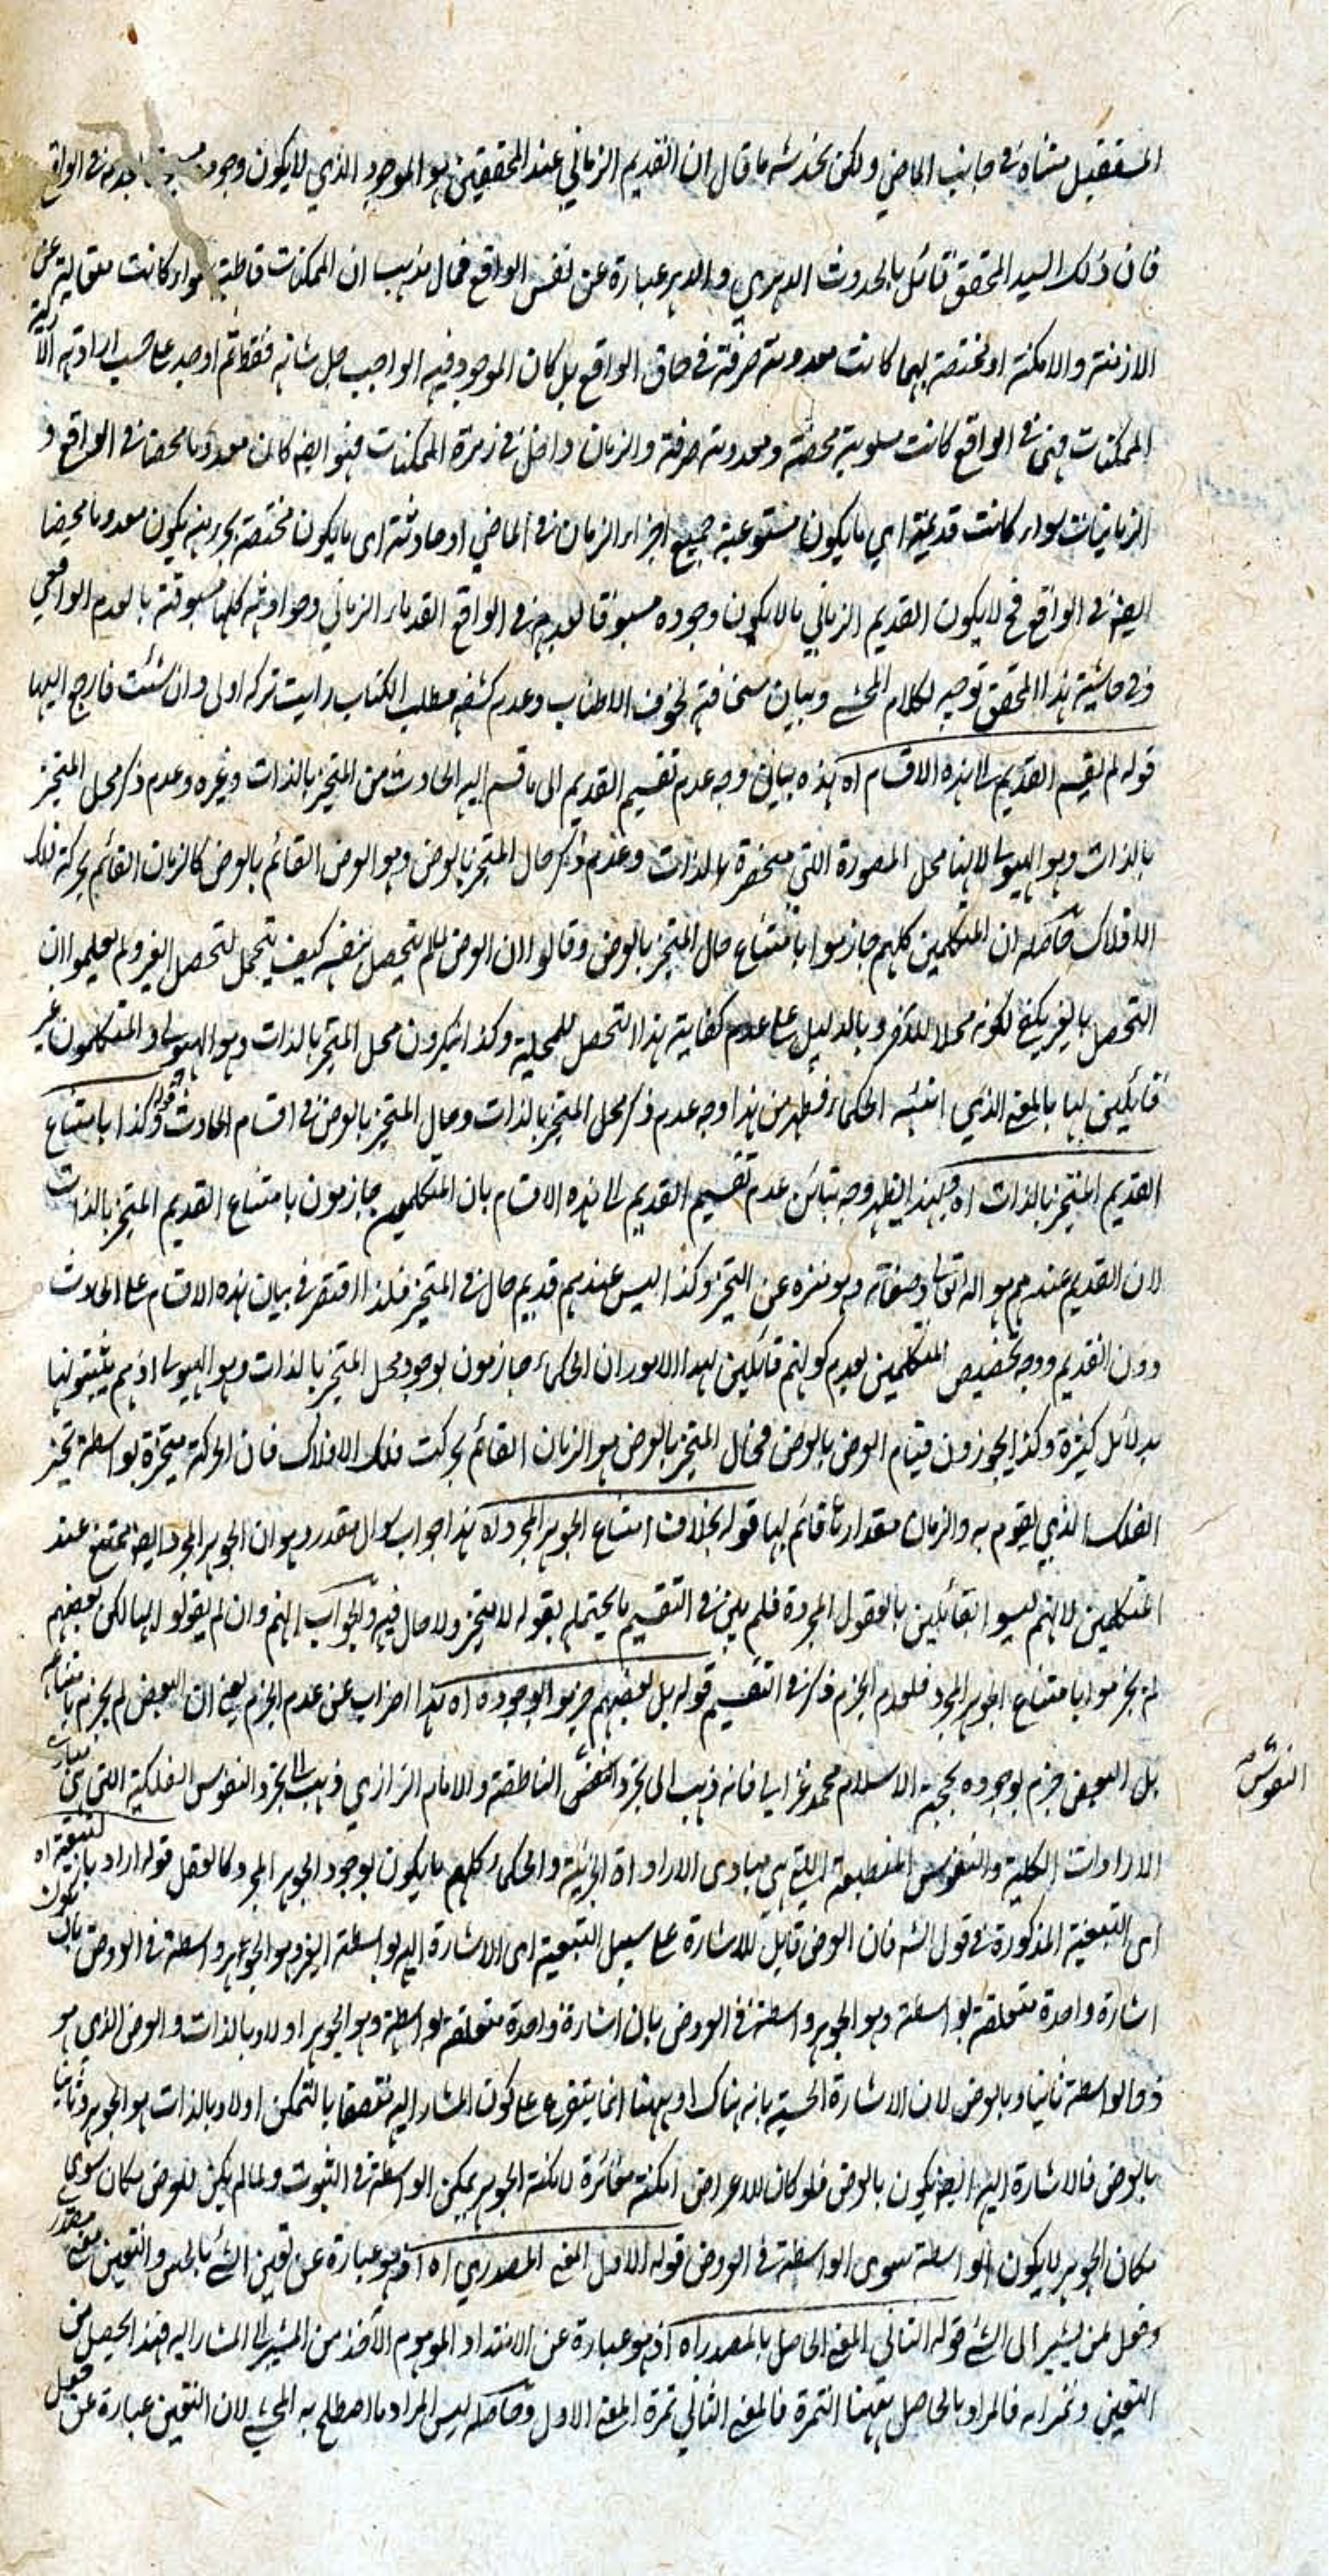 المستقبل متناه في جانب الماضي ولكن يخدشه ما قال ان القديم الزماني عند المحققين هو الموجود الذي لايكون وجوده بعدمه في الواقع
فان ذلك السيد المحقق قائل بالحدوث الدهري والدهر عبارة عن نفس الواقع فمال مذهب ان الممكنات قاطبة سواء كانت متعالية عن
الازمنة والامكنة او مختصة بهما كانت معدومة صرفة في حاق الواقع بل كان الموجود فيه الواجب جل شانه فقط ثم اوجد على حسب ارادته
الممكنات فهي في الواقع كانت مسلوبية محضة ومعدومة صرفة والزمان داخل في زمرة الممكنات فهو ايضا كان معدوما محضا في الواقع و
الزمانيات سواء كانت قديمة اي ما يكون مستوعبة جميع اجزاء الزمان في الماضي او حادثة اى ما يكون مختصة بجزء منه يكون معدوما محضا
ايضا في الواقع فح لايكون القديم الزماني ما لا يكون وجوده مسبوقا لعدمه في الواقع القدماء الزماني وحوادثه كلها مسبوقة بالعدم الواقعي
وفي حاشية هذا المحقق توجيه لكلام المحشے وبيان سخافته لخوف الاطناب وعدم كشفه مطلب الكتاب رايت تركه اولى وان شئت فارجع اليها
قوله لم يقسم القديم الى هذه الاقسام اه هذه بيان وجه عدم تقسيم القديم الى ما قسم اليه الحادث من المتحيز بالذات وغيره وعدم ذكر محل المتحيز
بالذات وهو الهيولى لانها محل الصورة التي متحيزة بالذات وعدم ذكر حال المتحيز بالعرض وهو العرض القائم بالعرض كالزمان القائم بحركة فلك
الافلاك حاصله ان المتكلمين كلهم جازموا بامتناع حال المتحيز بالعرض وقالوا ان العرض لما لم يتحصل بنفسه كيف يتحمل لتحصل الغير ولم يعلموا ان
التحصل بالغير يكفي لكونه محلا للآخر وبالدليل على عدم كفاية هذا التحصل للمحلية وكذا ينكرون محل المتحيز بالذات وهو الهيولى والمتكلمون غير
قائلين لها بالمعنى الذي اثبته الحكماء فظهر من هذا وجه عدم ذكر محل المتحيز بالذات وحال المتحيز بالعرض في اقسام الحادث قوله وكذا بامتناع
القديم المتحيز بالذات اه وبهذا يظهر وجه بتائن عدم تقسيم القديم الى هذه الاقسام بان المتكلمين جازمون بامتناع القديم المتحيز بالذات
لان القديم عندهم هو الله تعالى وصفاته وهو منزه عن التحيز وكذا ليس عندهم قديم حال في المتحيز فلذا اقتصر في بيان هذه الاقسام على الحادث
دون القديم ووجه تخصيص المتكلمين بعدم كونهم قائلين لهذا الامور ان الحكماء جازمون بوجود محل المتحيز بالذات وهو الهيولى اذ هم يثبتونها
بدلائل كثيرة وكذا يجوزون قيام العرض بالعرض فحال المتحيز بالعرض هو الزمان القائم بحركت فلك الافلاك فان الحركة متحيزة بواسطة تحيز
الفلك الذي يقوم به والزمان مقدارها قائم بها قوله بخلاف امتناع الجوهر المجرد اه هذا جواب سوال مقدر وهو ان الجوهر المجرد ايضا ممتنع عند
المتكلمين لانهم ليسوا بقائلين بالعقول المجردة فلم يلزم في التقسيم ما يحتمله بقوله لا متحيز ولا حال فيه والجواب انهم وان لم يقولوا بها لكن بعضهم
لم يجزموا بامتناع الجوهر المجرد فلعدم الجزم ذكر في التقسيم قوله بل بعضهم جزموا بوجوده اه هذا اضراب عن عدم الجزم يعني ان البعض لم يجزم بامتناعه
بل البعض جزم بوجوده كحجة الاسلام محمد غزالي فانه ذهب الى تجرد النفس الناطقة والامام الرازي ذهب الى تجرد النفوس الفلكية التي هي مبادي
النفوس
الارادات الكلية والنفوس المنطبعة التي هي مبادى الارادات الجزئية والحكماء كلهم ما يكون بوجود الجوهر المجرد كالعقل قوله اراد بالتبعية اه
اى التبعية المذكورة في قول الشه فان العرض قابل للاشارة على سبيل التبعية اى الاشارة اليه بواسطة الغير وهو الجوهر واسطة في العروض بان يكون
اشارة واحدة متعلقة بواسطة وهو الجوهر واسطة في العروض بان اشارة واحدة متعلقة بواسطة وهو الجوهر اولا وبالذات والعرض الذى هو
ذو الواسطة ثانيا وبالعرض لان الاشارة الحسية بانه هناك او ههنا انما يتفرع على كون المشار اليه متصفا بالتمكن اولا وبالذات هو الجوهر وثانيا
بالعرض فالاشارة اليه ايضا يكون بالعرض فلو كان للاعراض امكنة مغائرة لامكنة الجوهر يمكن الواسطة في الثبوت ولما لم يكن للعرض مكان سوى
مكان الجوهر لايكون الواسطة سوى الواسطة في العروض قوله الاول المعنى المصدري اه اذ هو عبارة عن تعين الشئ بالحس والتعين معنى مصدر
وفعل لمن يشير الى الشئ قوله الثاني المعنى الحاصل بالمصدر اه اذ هو عبارة عن الامتداد الموهوم الآخذ من المشير الى المشار اليه فهذا يحصل من
التعين وثمرته فالمراد بالحاصل ههنا الثمرة فالمعنى الثاني ثمرة المعنى الاول وحاصله ليس المراد ما اصطلح به المحشے لان التعين عبارة عن فعل